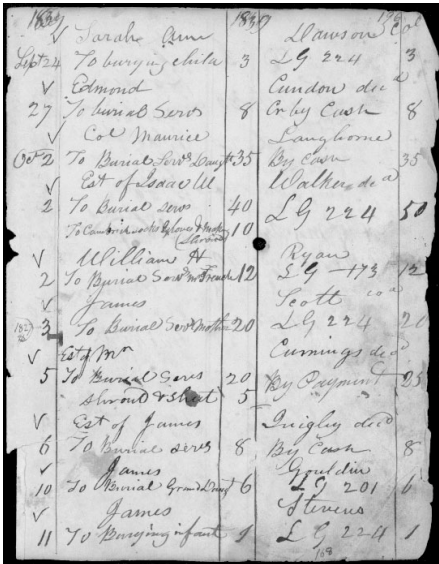 1839 1839 196
Sarah Ann Dawson Col
Sept 24 To burying child 3 L G 224 3
Edmond Cundon dec d
27 To burial Servs 8 Cr by Cash 8
Col Maurice Langhorne
Oct 2 To Burial Servs Daught 35 By Cash 35
Est of Isaac W Walker dec d
2 To Burial servs 40 L G 224 50
To Gloves & 10
(Shroud
William H Ryan
2 To Burial Servs Mr French 12 L G 173 12
James Scott
3 To Burial Servs Mother 20 L G 224 20
Est of Mrs Cumings decd
5 To Burial Servs 20 By Payment 25
Shroud & Sheet 5 " "
Est of James Quigley decd
6 To Burial servs 8 By Cash 8
James Gouldin
10 To Burial Grand Daugt 6 L G 201 6
James Stevens
11 To Burying infant 1 L G 224 1
108